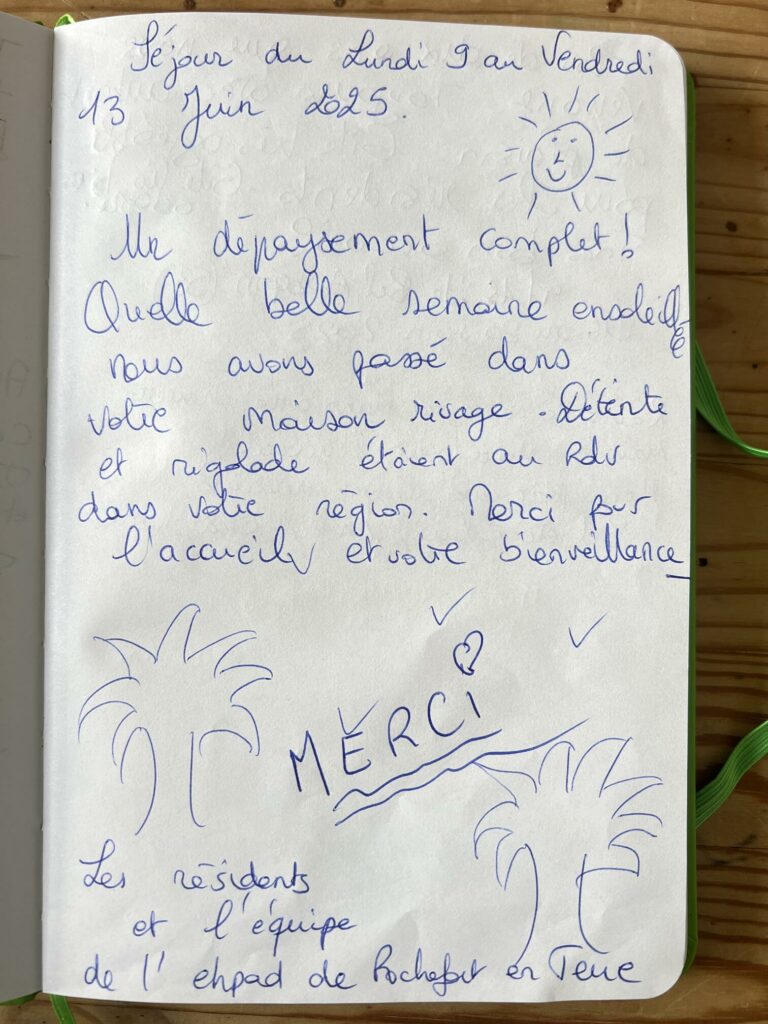 Séjour du Lundi 9 au Vendredi
13 Juin 2025.
Un dépaysement complet !
Quelle belle semaine ensoleillée
nous avons passé dans
votre maison rivage. Détente
et rigolade étaient au Rdv
dans votre région. Merci pour
l'accueil et votre bienveillance
MERCI
Les résidents
et l'équipe
de l'ehpad de Rochefort en Terre